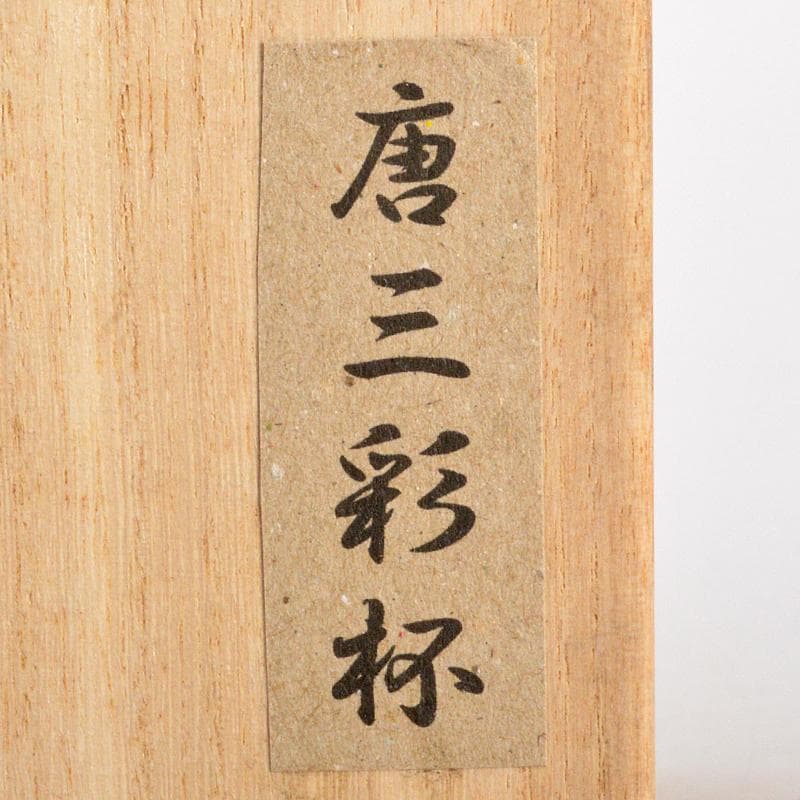 唐三彩杯